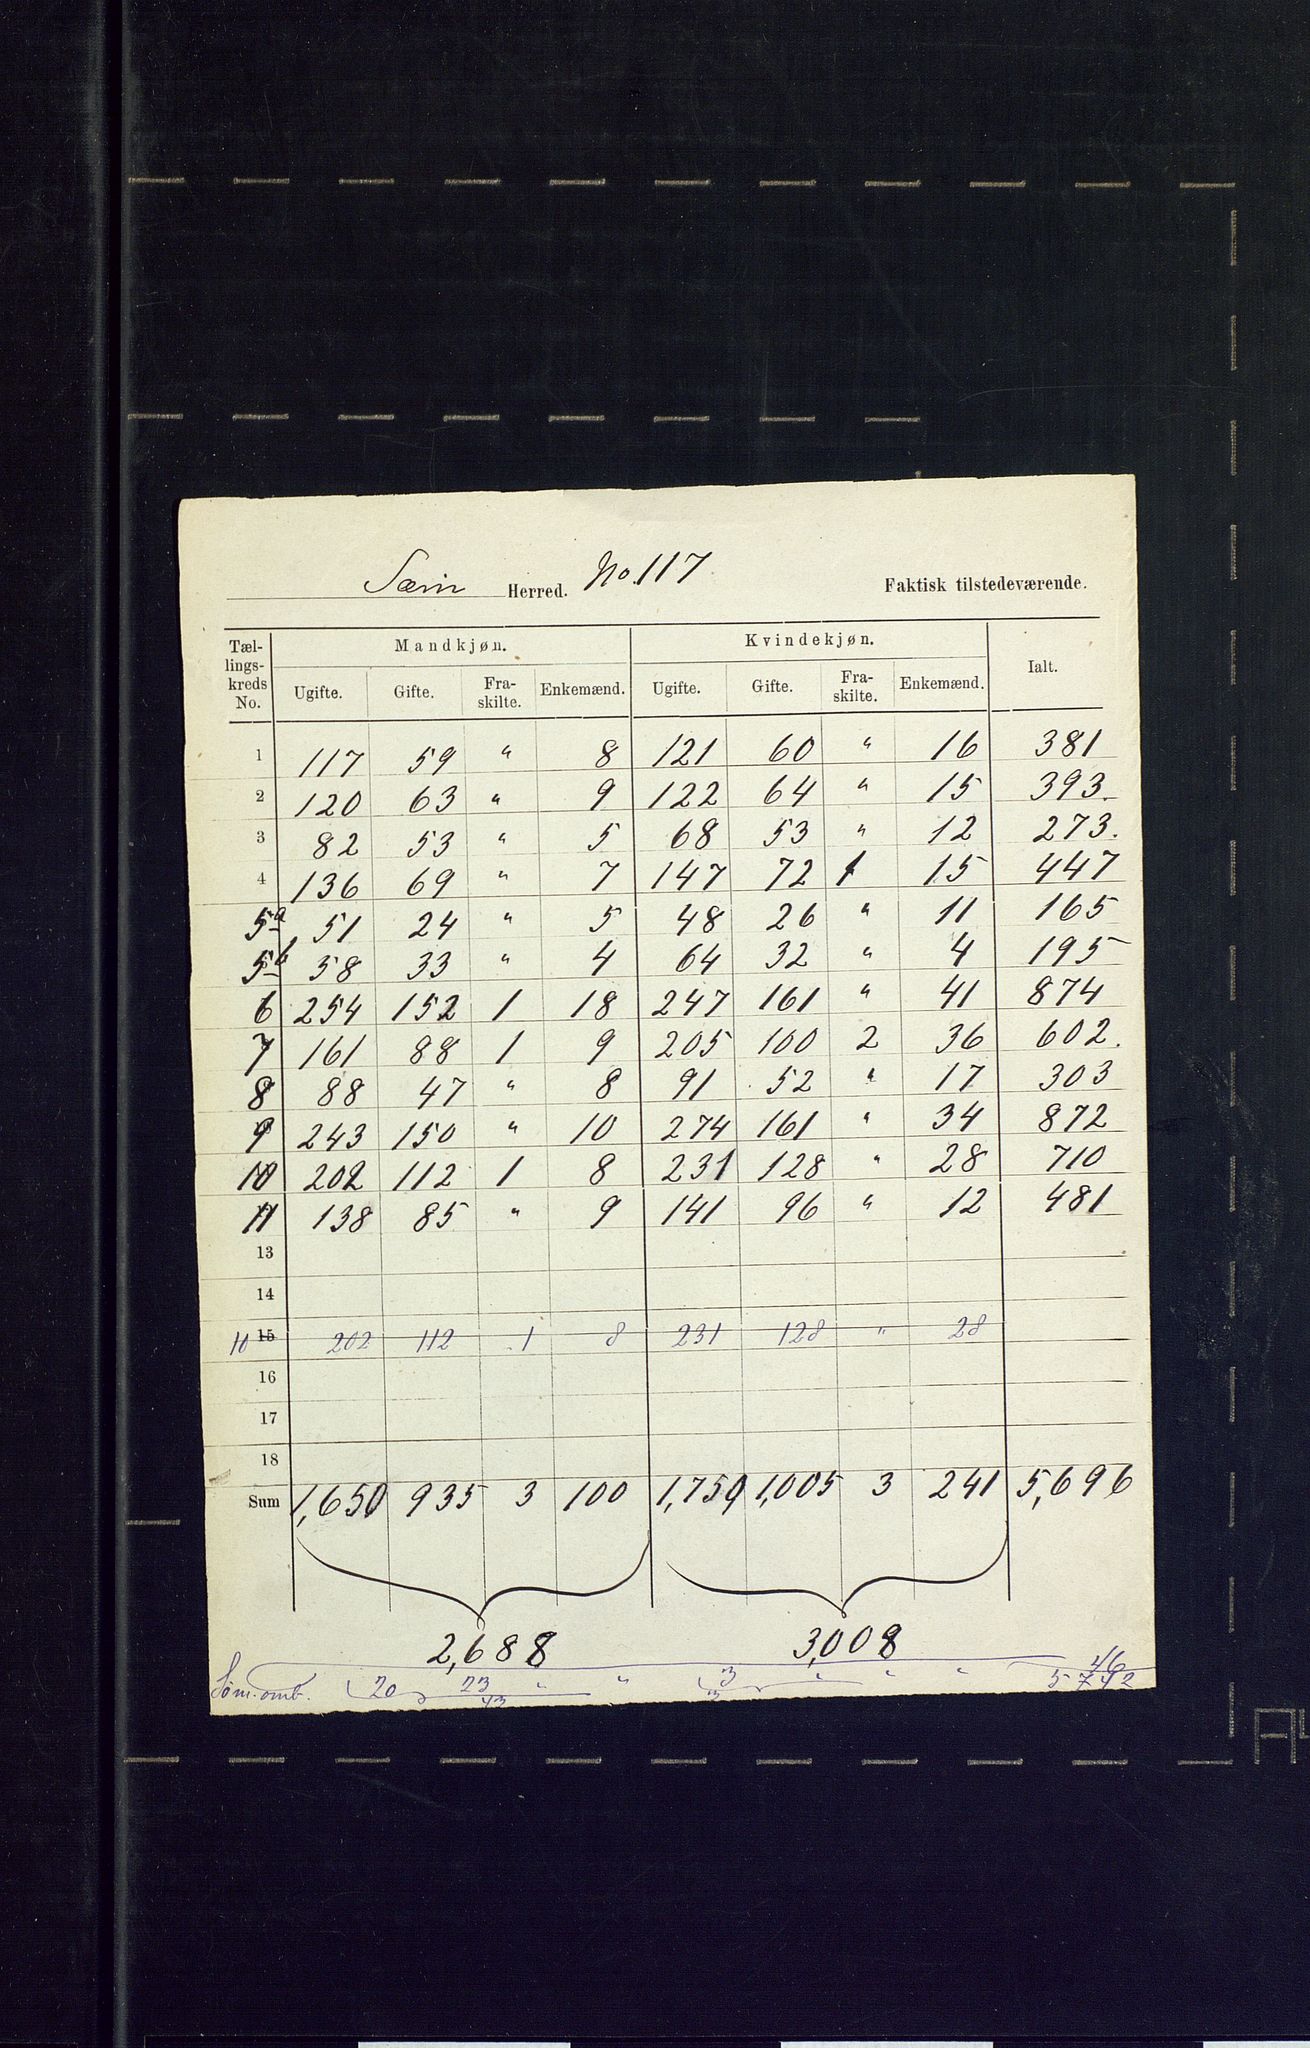 Sæm Herred. No. 117 Faktisk tilstedeværende.
Tællingskreds No. Mandkjøn. Kvindekjøn. Ialt.
Ugifte. Gifte. Fraskilte. Enkemænd. Ugifte. Gifte. Fraskilte. Enkemænd.
1 117 59 " 8 121 60 " 16 381
2 120 63 " 9 122 64 " 15 393.
3 82 53 " 5 68 53 " 12 273.
4 136 69 " 7 147 72 1 15 447
5a 51 24 " 5 48 26 " 11 165
5b 58 33 " 4 64 32 " 4 195
6 254 152 1 18 247 161 " 41 874
7 161 88 1 9 205 100 2 36 602.
8 88 47 " 8 91 52 " 17 303
9 243 150 " 10 274 161 " 34 872
10 202 112 1 8 231 128 " 28 710
11 138 85 " 9 141 96 " 12 481
13
14
10 15 202 112 1 8 231 128 " 28
16
17
18
Sum 1,650 935 3 100 1,759 1,005 3 241 5,696
2,688 3,008
46
Søm. omb. 20 23 " " 3 " " " 5742
43 3